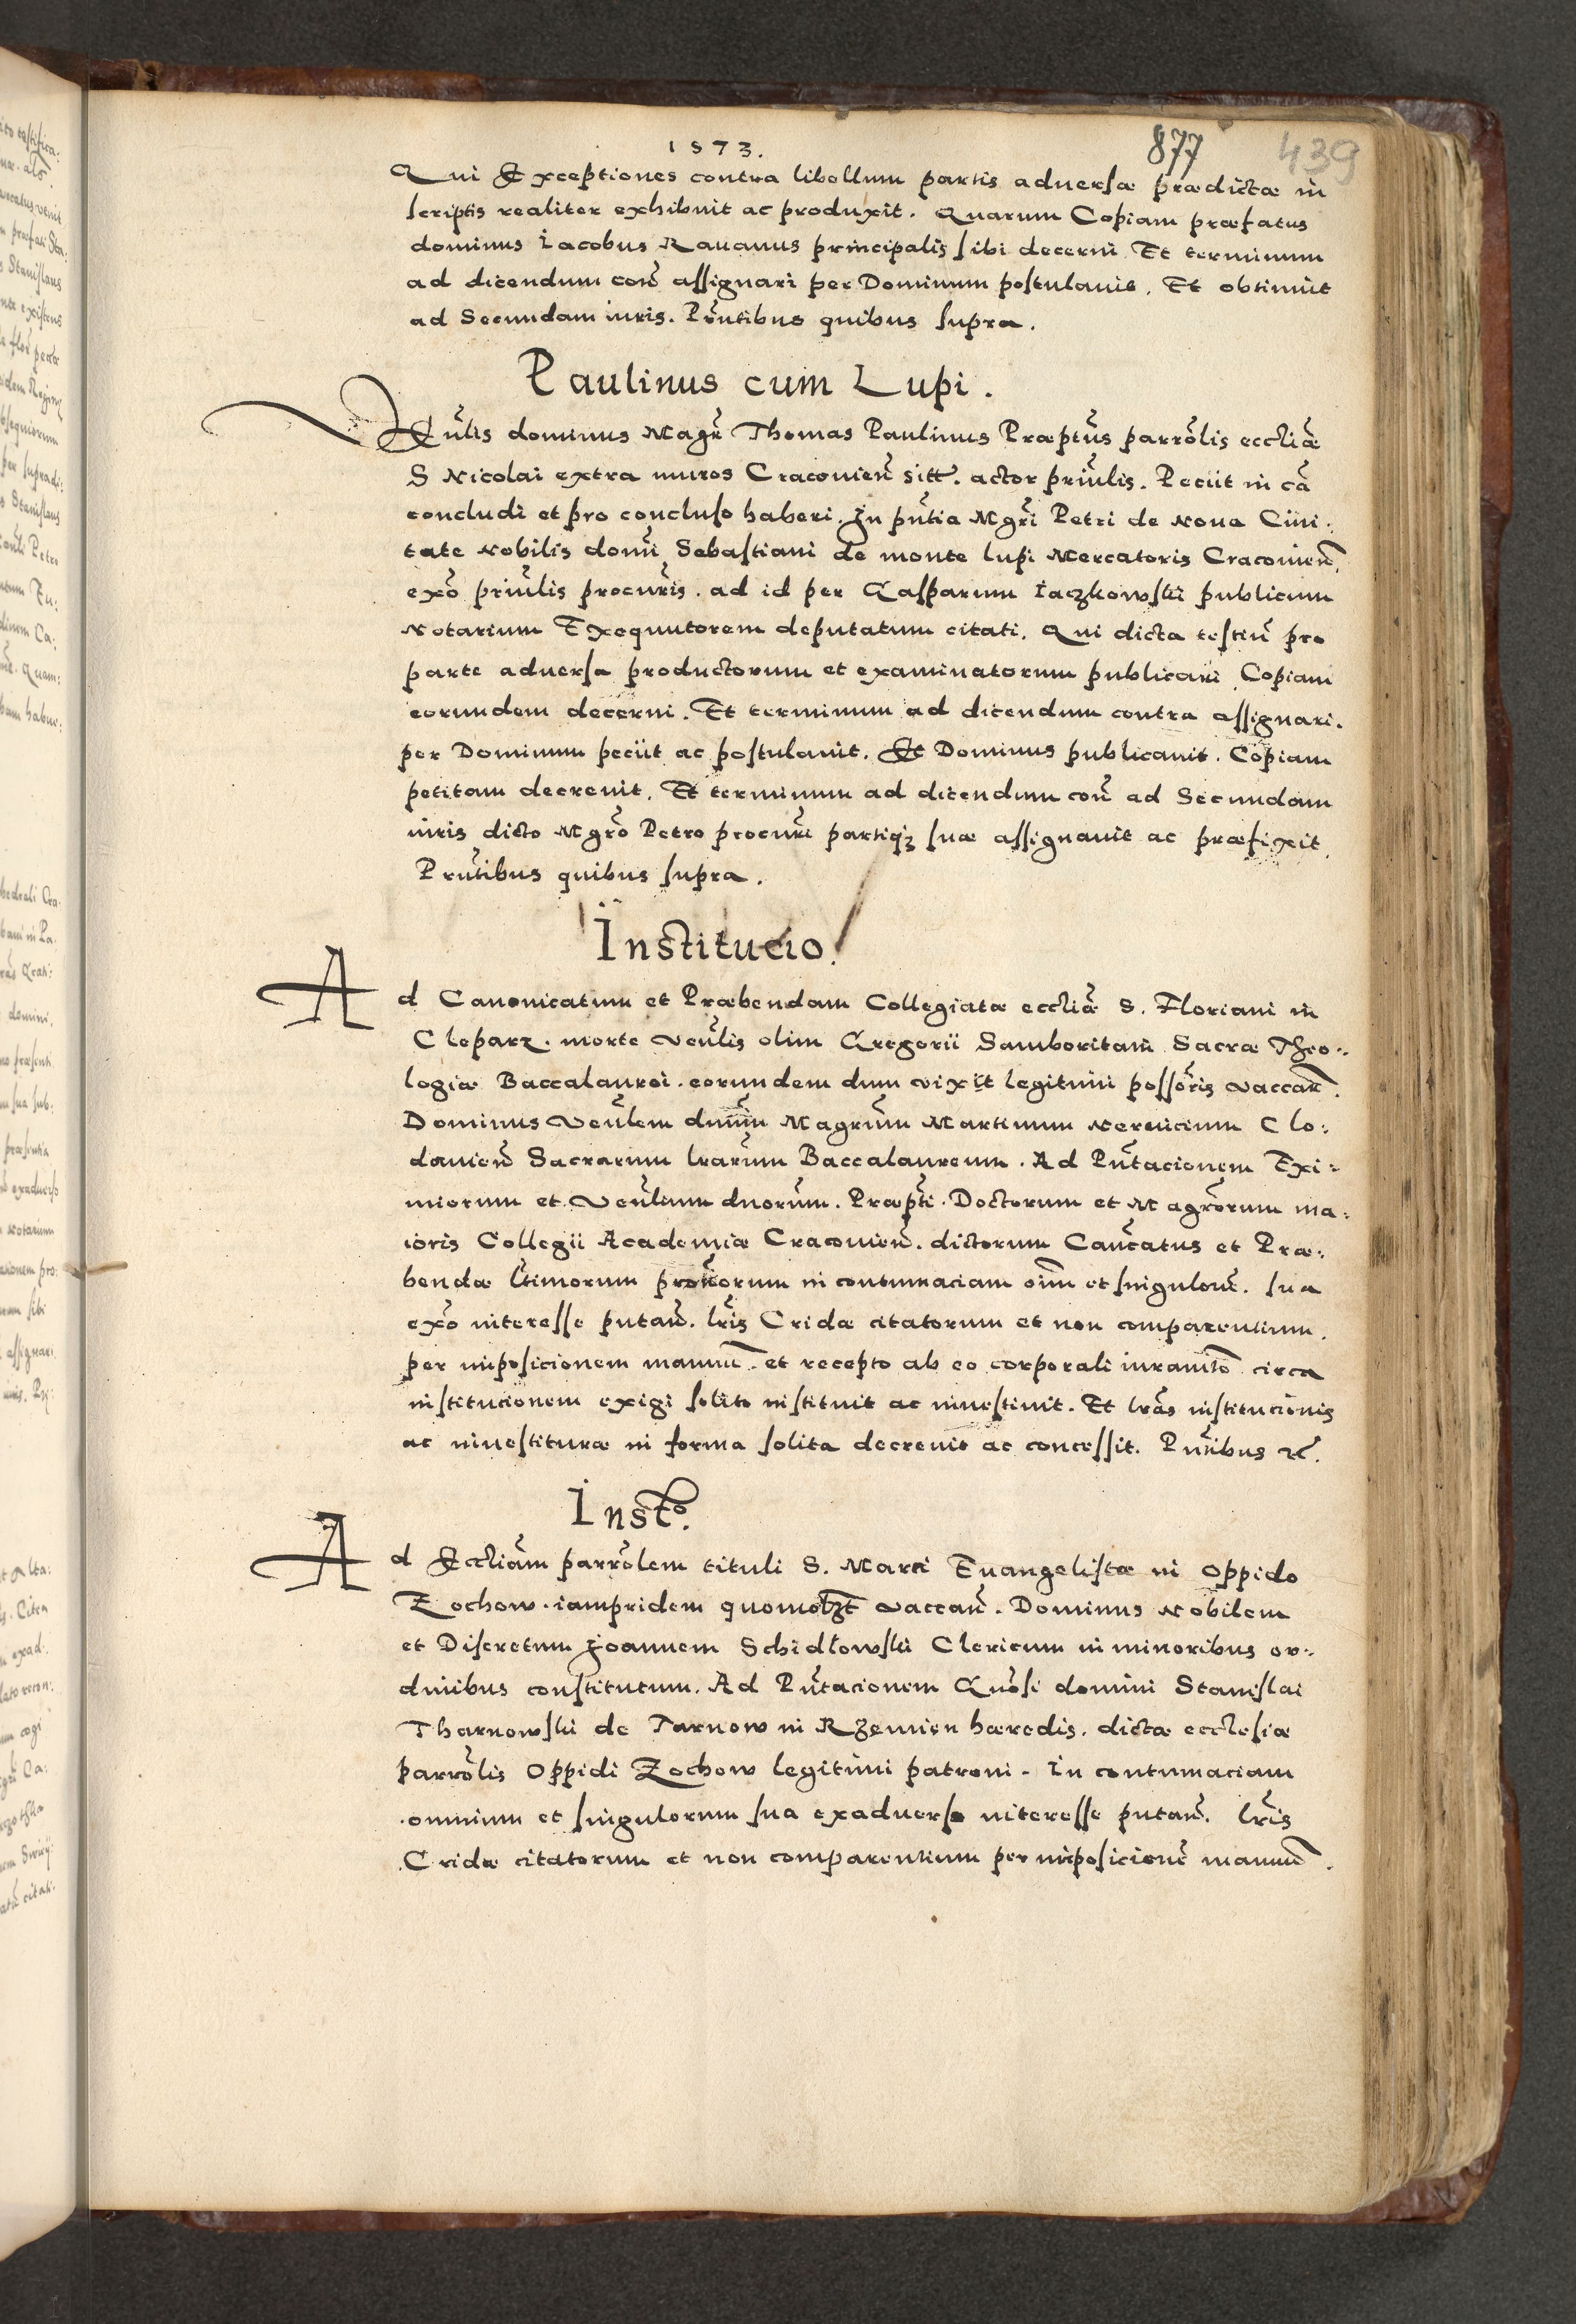 1573.
877
439
Qui Exceptiones contra libellum partis adversæ prædictæ in
scriptis realiter exhibuit ac produxit. Quarum Copiam præfatus
dominus Iacobus Rauanus principalis sibi decerni Et terminum
ad dicendum con̄ assignari per Dominum postulauit. Et obtinuit
ad Secundam iuris. Pn̄tibus quibus supra.
Paulinus cum Lupi.
Vēnlis dominus Magr̄ Thomas Paulinus Præpt̄us parrōlis eccliǣ
S Nicolai extra muros Cracovien̄ sitt. actor prin̄lis. Peciit in cā
concludi et pro concluso haberi. In pn̄tia Mgr̄i Petri de Noua Ciui:
tate Nobilis domī Sebastiani de monte lupi Mercatoris Cracovien̄.
exō prin̄lis procur̄is. ad id per Gasparum Iaczkowski publicum
Notarium Exequutorem deputatum citati. Qui dicta testiū pro
parte adversa productorum et examinatorum publicari Copiam
eorundem decerni. Et terminum ad dicendum contra assignari.
per Dominum peciit ac postulauit. Et Dominus publicauit. Copiam
petitam decreuit. Et terminum ad dicendum con̄ ad Secundam
iuris dicto Mgrō Petro procur̄i partiq3 suæ assignauit ac præfixit.
Pn̄tibus quibus supra.
Institucio.
Ad Canonicatum et Præbendam Collegiatæ eccliǣ S. Floriani in
Cleparz. morte Ven̄lis olim Gregorii Samboritani Sacræ Theo:
logiæ Baccalaurei. eorundem dum vixit legitimi possōris vaccan̄.
Dominus Ven̄lem dnūm Magrūm Martinum Nervicium Clo:
davien̄ Sacrarum lrārum Baccalaureum. Ad Pn̄tacionem Exi:
miorum et Ven̄lium dnorūm. Præpt̄i. Doctorum et Magrōrum ma:
ioris Collegii Academiæ Cracovien̄. dictorum Can̄catus et Præ:
bendæ ltimorum pronorum in contumaciam oīm et singulorū. sua
exō interesse putan̄. lrīs Cridæ citatorum et non comparentium.
per imposicionem manuū. et recepto ab eo corporali iuramtō circa
institucionem exigi solito instituit ac inuestiuit. Et lrās institucionis
ac inuestituræ in forma solita decreuit ac concessit. Pn̄tibus etc̄.
Instō.
Ad Eccliām parrōlem tituli S. Marci Euangelistæ in Oppido
Zochow. iampridem quomolzt vaccan̄. Dominus Nobilem
et Discretum Joannem Schidłowski Clericum in minoribus or:
dinibus constitutum. Ad Pn̄tacionem Gn̄osi domini Stanislai
Tharnowski de Tarnow in Rzemien hæredis. dictæ ecclesiæ
parrōlis Oppidi Zochow legitimi patroni. In contumaciam
omnium et singulorum sua exadverso interesse putan̄. lrīs
Cridæ citatorum et non comparentium per imposicionē manuū.